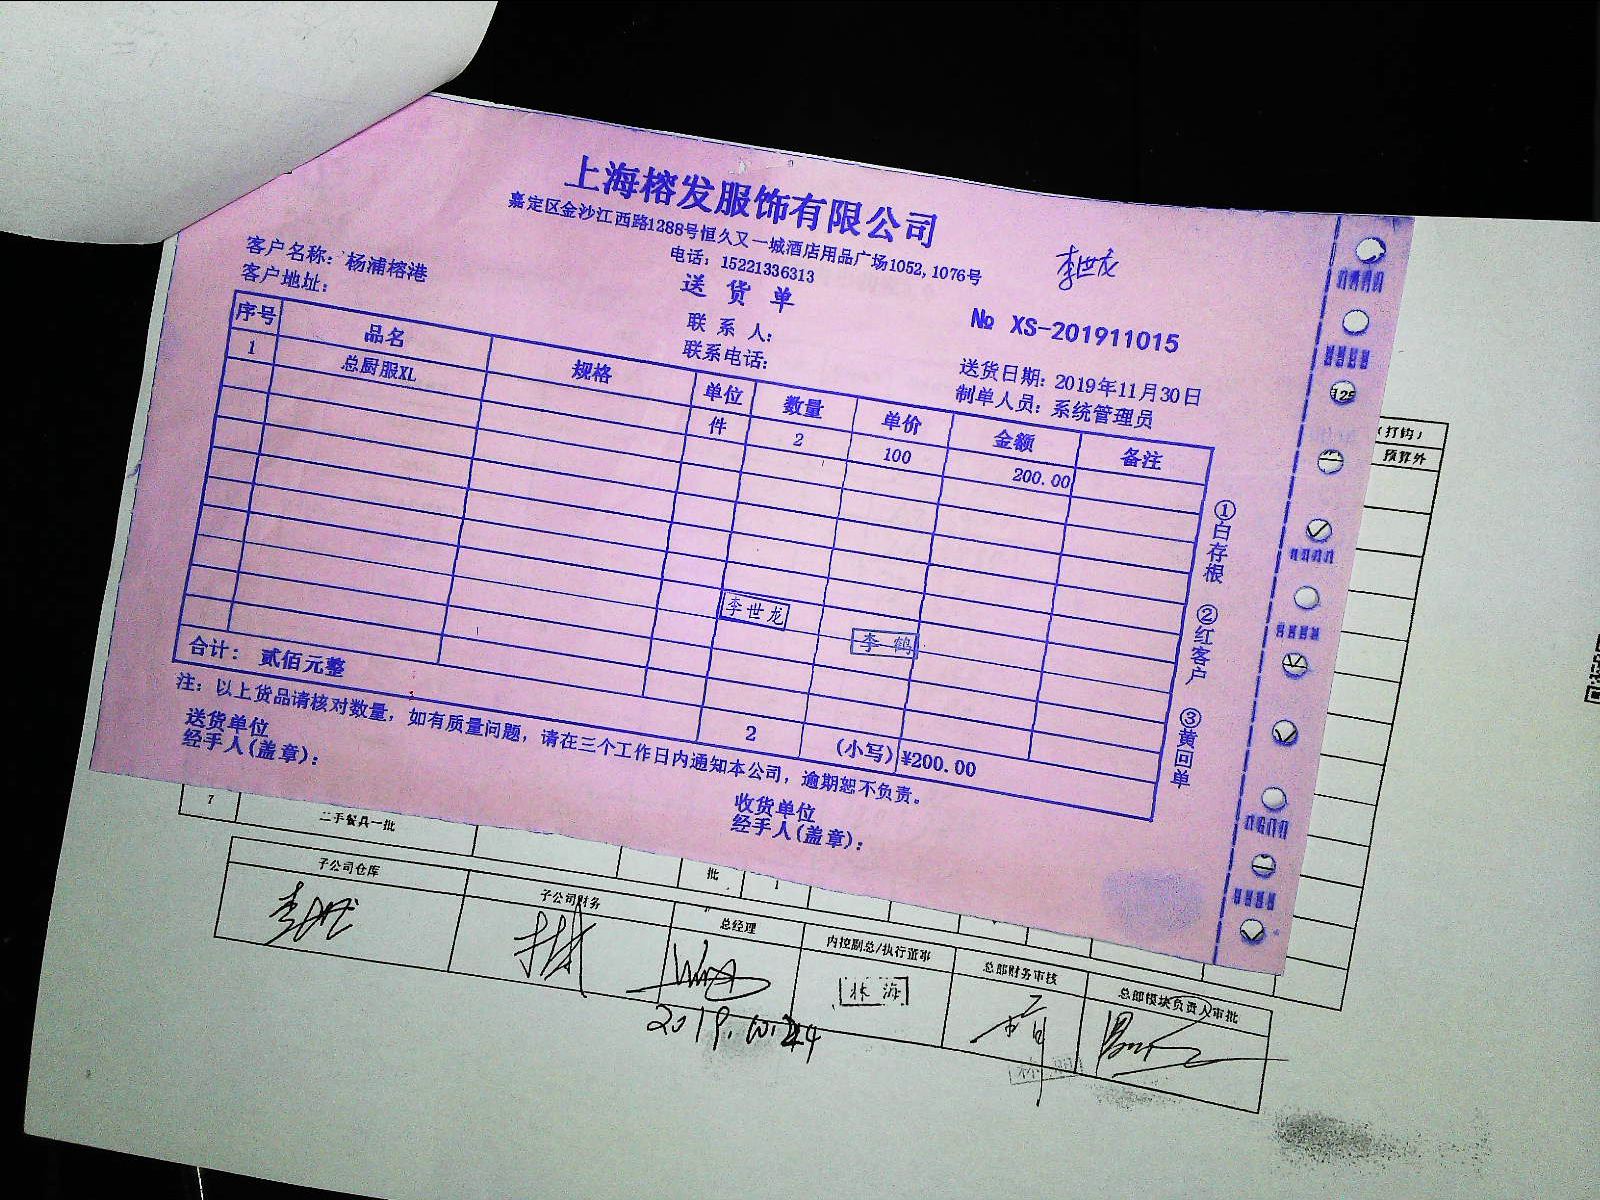 上海榕发服饰有限公司
嘉定区金沙江西路1288号恒久又一城酒店用品广场1052,1076号
电话：15221336313
李世龙
送 货 单
客户名称：杨浦榕港
客户地址：
联 系 人：
联系电话：
№ XS-201911015
送货日期：2019年11月30日
制单人员：系统管理员
序号 品名 规格 单位 数量 单价 金额 备注
1 总厨服XL 件 2 100 200.00
李世龙
李 鹤
合计： 贰佰元整 2 (小写) ¥200.00
注：以上货品请核对数量，如有质量问题，请在三个工作日内通知本公司，逾期恕不负责。
送货单位
经手人(盖章)：
收货单位
经手人(盖章)：
①白存根 ②红客户 ③黄回单
(打钩)
预算外
7 二手餐具一批 批 1
子公司仓库 子公司财务 总经理 内控副总/执行董事 总部财务审核 总部模块负责人审批
林 海